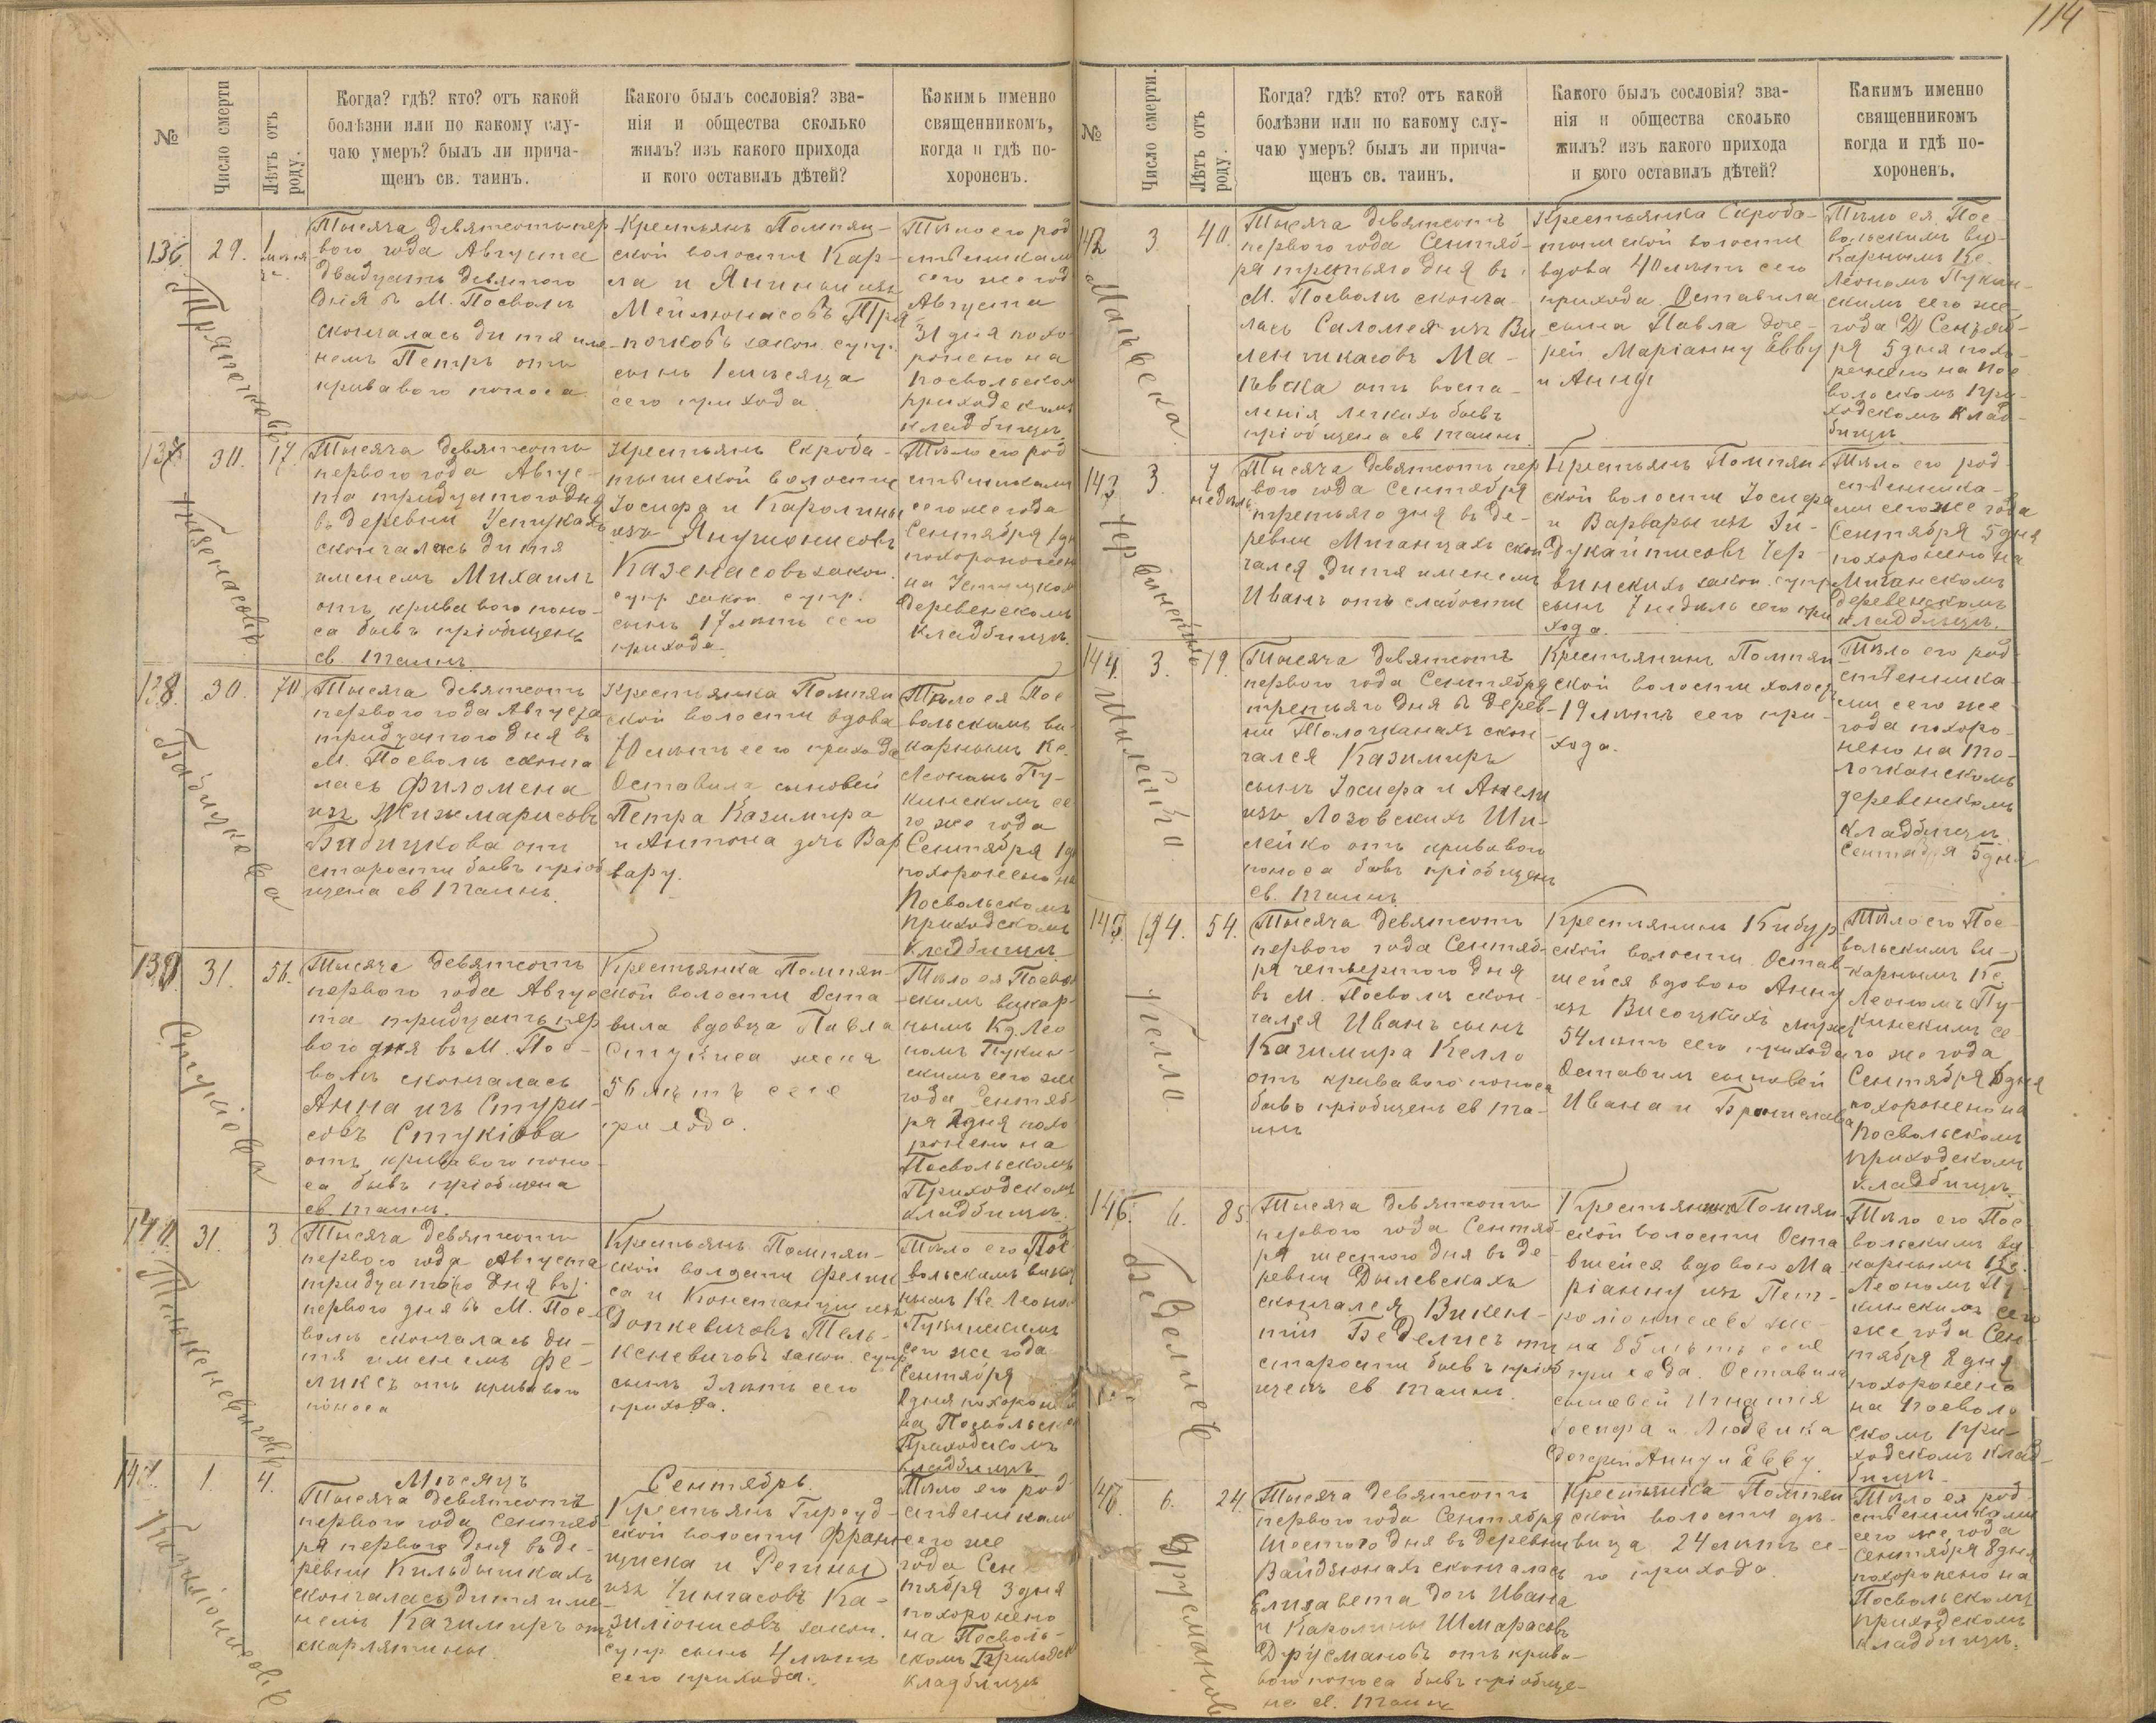 114
№
Число смерти
Лѣтъ отъ роду.
Когда? гдѣ? кто? отъ какой
болѣзни или по какому слу-
чаю умеръ? былъ ли прича-
щенъ св. таинъ.
Какого былъ сословія? зва-
нія и общества сколько
жилъ? изъ какого прихода
и кого оставилъ дѣтей?
Какимъ именно
священникомъ,
когда и гдѣ по-
хороненъ.
136. 29. 1
Тысяча девятьсотъ пер
вого года Августа
двадцать девятого
дня в М. Посволь
скончалась дитя име-
немъ Петръ отъ
кривавого поноса
Крестьянъ Помпян-
ской волости Кар-
ла и
сынъ 1 мѣсяца
сего прихода
Тѣло его род
ственниками
сего же год
Августа
31 дня похо
ронено на
Посвольском
приходском
кладбищѣ
137 30. 17.
Казенасовъ
Тысяча девятсотъ
первого года Авгус-
та тридцатого дня
въ деревни Устуках
скончалась дитя
именемъ Михаилъ
отъ кривавого поно-
са бывъ пріобщенъ
св. таинъ
Крестьянъ Скроба-
тышской волости
Іосифа и Каролины
изъ Янушонисовъ
Казенасовъ закон.
супр. закон. супр.
сынъ 17 лѣтъ сего
прихода
Тѣло его род
ственниками
сего же года
Сентября 1 дн
похоронен
на
деревенскомъ
кладбищѣ
138. 30. 70
Бабицкова
Тысяча девятсотъ
первого года Августа
тридцатого дня в
М. Посволь сконча
лась Филомена
изъ Жижмарисовъ
Бабицкова отъ
старости бывъ пріоб
щена св таинъ.
Крестьянка Помпян
ской волости вдова
70 лѣтъ сего прихода
Оставила сыновей
Петра Казимира
и Антона дчь Вар
вару.
Тѣло ея Пос
вольскимъ ви-
карнымъ Кс.
Леономъ Пу-
кинскимъ се
го же года
Сентября 1 дн
похоронено на
Посвольскомъ
приходскомъ
кладбищѣ
139 31. 56.
Стукіова
Тысяча девятсотъ
первого года Авгус
та тридцать пер
вого дня въ М. Пос-
воль скончалась
Анна изъ Стури-
совъ Стукіова
отъ кривавого поно-
са бывъ пріобщена
св. таинъ.
Крестьянка Помпян-
ской волости Оста
вила вдовца Павла
жена
56 лѣтъ сего
прихода.
Тѣло ея Посволь
скимъ викар-
нымъ Кс Лео
номъ Пукин-
скимъ сего же
года Сентяб-
ря 2 дня похо
ронено на
Посвольскомъ
Приходскомъ
кладбищѣ.
140. 31. 3
Тысяча девятсотъ
первого года Августа
тридцатого дня въ
первого дня в М. Пос
воль скончалась ди-
тя именемъ Фе-
ликсъ отъ кривавого
поноса
Крестьянъ Помпян-
ской волости Фелик
са и Констанціи изъ
кеневичовъ закон. супр
сынъ 3 лѣтъ сего
прихода.
Тѣло его Пос
вольскимъ викар
нымъ Кс Леоном
Пукинскимъ
сего же года
Сентября
2 дня похоронено
на Посвольско
Приходскомъ
кладбищѣ
Мѣсяцъ Сентябрь.
141. 1. 4.
Казиліонисовъ
Тысяча девятсотъ
первого года Сентяб
ря первого дня въ де-
ревни Кильдишкахъ
скончалась дитя име-
немъ Казимиръ отъ
скарлятины.
Крестьянъ Гируд-
ской волости Франц
циска и Регины
изъ Чинчасовъ Ка-
зиліонисовъ закон.
супр сынъ 4 лѣтъ
сего прихода.
Тѣло его род-
ственниками
сего же
года Сен
тября 3 дня
похоронено
на Посволь-
скомъ Приходско
кладбищѣ
№
Число смерти.
Лѣтъ отъ роду.
Когда? гдѣ? кто? отъ какой
болѣзни или по какому слу-
чаю умеръ? былъ ли прича-
щенъ св. таинъ.
Какого былъ сословія? зва-
нія и общества сколько
жилъ? изъ какого прихода
и кого оставилъ дѣтей?
Какимъ именно
священникомъ
когда и гдѣ по-
хороненъ.
142 3. 40.
Тысяча девятсотъ
первого года Сентяб-
ря третьяго дня въ
М. Посволь сконча-
лась Саломея изъ Ви
ленчикасовъ Ма-
отъ воспа-
ленія легкихъ бывъ
пріобщена св таинъ.
Крестьянка Скроба-
тышской волости
вдова 40 лѣтъ сего
прихода. Оставила
сына Павла доче-
рей Маріанну Евву
и Анну
Тѣло ея Пос
вольскимъ ви-
карнымъ Кс.
Леономъ Пукин-
скимъ сего же
года Сентяб-
ря 5 дня похо-
ронено на Пос
вольскомъ при-
ходскомъ клад-
бищѣ
143 3. 7 недѣль
Тысяча девятсотъ пер
вого года Сентября
третьяго дня въ де-
ревни Миганцахъ скон
чался дитя именемъ
Иванъ отъ слабости
Крестьянъ Помпян-
ской волости Іосифа
и Варвары изъ
Чер-
винскихъ закон. супр
сынъ 7 недѣль сего при
хода.
Тѣло его род
ственника-
ми сего же года
Сентября 5 дня
похоронено на
Миганскомъ
деревенскомъ
кладбищѣ.
144. 3. 19.
Шилейко
Тысяча девятсотъ
первого года Сентября
третьяго дня в дерев-
ни Толочканахъ скон
чался Казимиръ
сынъ Іосифа и Анели
изъ Лозовскихъ Ши-
лейко отъ кривавого
поноса бывъ пріобщенъ
св. таинъ
Крестьянинъ Помпян
ской волости холост
19 лѣтъ сего при-
хода.
Тѣло его род
ственника-
ми сего же
года похоро-
нено на То-
лочканскомъ
деревенскомъ
кладбищѣ
Сентября 5 дня
145. 4. 54.
Келло.
Тысяча девятсотъ
первого года Сентяб-
ря четвертого дня
въ М. Посволь скон-
чался Иванъ сынъ
Казимира Келло
отъ кривавого поноса
бывъ пріобщенъ св та-
инъ
Крестьянинъ Кибур
ской волости. Остав-
шейся вдовою Анну
изъ Высоцкихъ мужъ
54 лѣтъ сего прихода
Оставилъ сыновей
Ивана и Бронислава
Тѣло его Пос
вольскимъ ви-
карнымъ Кс
Леономъ Пу-
кинскимъ се-
го же года
Сентября 6 дня
похоронено на
Посвольскомъ
приходскомъ
кладбищѣ.
146. 6. 85
Беделисъ
Тысяча девятсотъ
первого года Сентяб
ря шестого дня въ де-
ревни Дылевскахъ
скончался Викен-
тій Беделисъ отъ
старости бывъ пріоб
щенъ св таинъ.
Крестьянинъ Помпян-
ской волости Оста
вшейся вдовою Ма
ріанну изъ Пет-
на 85 лѣтъ сего
прихода. Оставилъ
сыновей Игнатія
Іосифа и Людвика
дочерей Анну и Евву
Тѣло его Пос
вольскимъ ви
карнымъ Кс.
Леономъ Пу-
кинскимъ сего
же года Сен
тября 8 дня
похоронено
на Посволь
скомъ при-
ходскомъ клад-
бищѣ
6. 24
Друсмановъ
Тысяча девятсотъ
первого года Сентября
шестого дня въ деревни
Вайдзюнахъ скончалась
Елизавета дочь Ивана
и Каролины Шмарасовъ
Друсмановъ отъ крива-
вого поноса бывъ пріобще-
на св. таинъ
Крестьянка Помпян
ской волости дѣ-
вица 24 лѣтъ се-
го прихода.
Тѣло ея род
ственниками
сего же года
Сентября 8 дня
похоронено на
Посвольскомъ
приходскомъ
кладбищѣ.